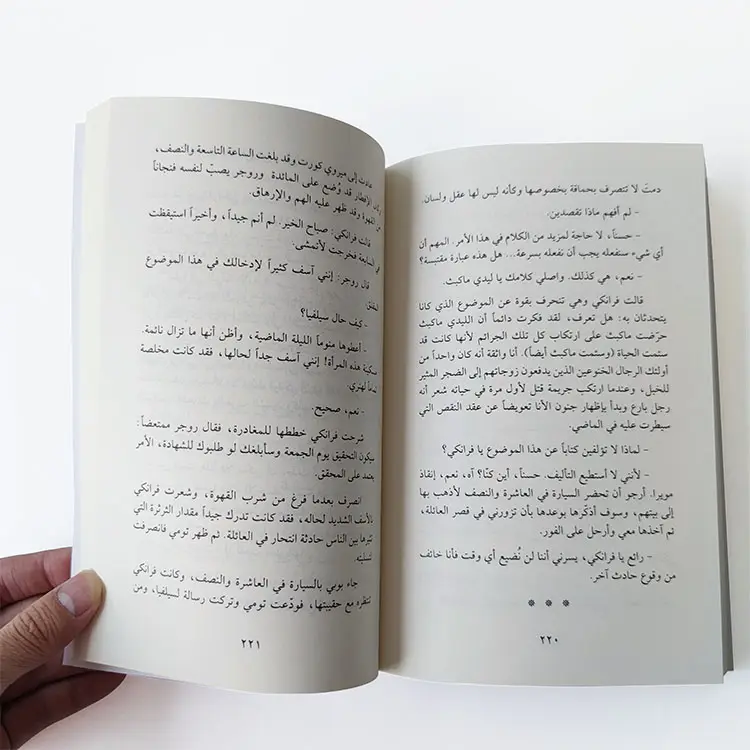 دمتَ لا تتصرف بحماقة بخصوصها وكأنه ليس لها عقل ولسان.
- لم أفهم ماذا تقصدين.
- حسناً، لا حاجة لمزيد من الكلام في هذا الأمر. المهم أن
أي شيء سنفعله يجب أن نفعله بسرعة... هل هذه عبارة مقتبسة؟
- نعم، هي كذلك. واصلي كلامك يا ليدي ماكبث.
قالت فرانكي وهي تنحرف بقوة عن الموضوع الذي كانا
يتحدثان به: هل تعرف، لقد فكرت دائماً أن الليدي ماكبث
حرّضت ماكبث على ارتكاب كل تلك الجرائم لأنها كانت قد
سئمت الحياة (وسئمت ماكبث أيضاً). أنا واثقة أنه كان واحداً من
أولئك الرجال الخَنوعين الذين يدفعون زوجاتهم إلى الضجر المثير
للخبل، وعندما ارتكب جريمة قتل لأول مرة في حياته شعر أنه
رجل بارع وبدأ بإظهار جنون الأنا تعويضاً عن عقد النقص التي
سيطرت عليه في الماضي.
- لماذا لا تؤلفين كتاباً عن هذا الموضوع يا فرانكي؟
- لأنني لا أستطيع التأليف. حسناً، أين كنّا؟ آه، نعم، إنقاذ
مويرا. أرجو أن تحضر السيارة في العاشرة والنصف لأذهب بها
إلى بيتهم، وسوف أذكّرها بوعدها بأن تزورني في قصر العائلة،
ثم آخذها معي وأرحل على الفور.
- رائع يا فرانكي، يسرني أننا لن نُضيع أي وقت فأنا خائف
من وقوع حادث آخر.
* * *
٢٢٠
عادت إلى ميروي كورت وقد بلغت الساعة التاسعة والنصف،
وكان الإفطار قد وُضع على المائدة وروجر يصبّ لنفسه فنجاناً
من القهوة وقد ظهر عليه الهم والإرهاق.
قالت فرانكي: صباح الخير. لم أنم جيداً، وأخيراً استيقظت
في السابعة فخرجت لأتمشى.
قال روجر: إنني آسف كثيراً لإدخالك في هذا الموضوع
المقلق.
- كيف حال سيلفيا؟
- أعطوها منوماً الليلة الماضية، وأظن أنها ما تزال نائمة.
مسكينة هذه المرأة! إنني آسف جداً لحالها، فقد كانت مخلصة
دائماً لهنري.
- نعم، صحيح.
شرحت فرانكي خططها للمغادرة، فقال روجر ممتعضاً:
سيكون التحقيق يوم الجمعة وسأبلغك لو طلبوك للشهادة، الأمر
يعتمد على المحقق.
انصرف بعدما فرغ من شرب القهوة، وشعرت فرانكي
بالأسف الشديد لحاله، فقد كانت تدرك جيداً مقدار الثرثرة التي
تثيرها بين الناس حادثة انتحار في العائلة. ثم ظهر تومي فانصرفت
لتسليته.
جاء بوبي بالسيارة في العاشرة والنصف، وكانت فرانكي
تنتظره مع حقيبتها، فودّعت تومي وتركت رسالة لسيلفيا، ومن
٢٢١